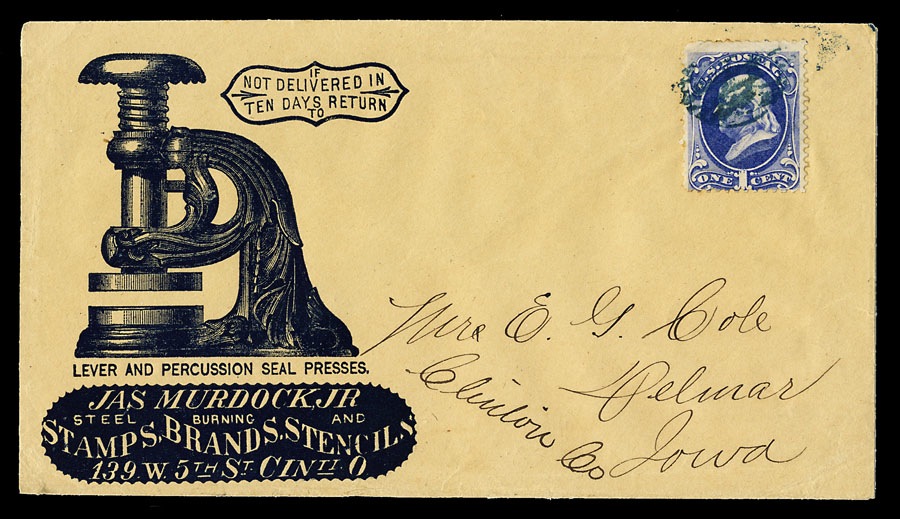 IF
NOT DELIVERED IN
TEN DAYS RETURN
TO
U.S. POSTAGE
ONE 1 CENT
LEVER AND PERCUSSION SEAL PRESSES.
JAS MURDOCK, JR
STEEL BURNING AND
STAMPS, BRANDS, STENCILS
139. W. 5TH ST. CINTI. O
Mrs E. G. Cole
Delmar
Clinton Co Iowa